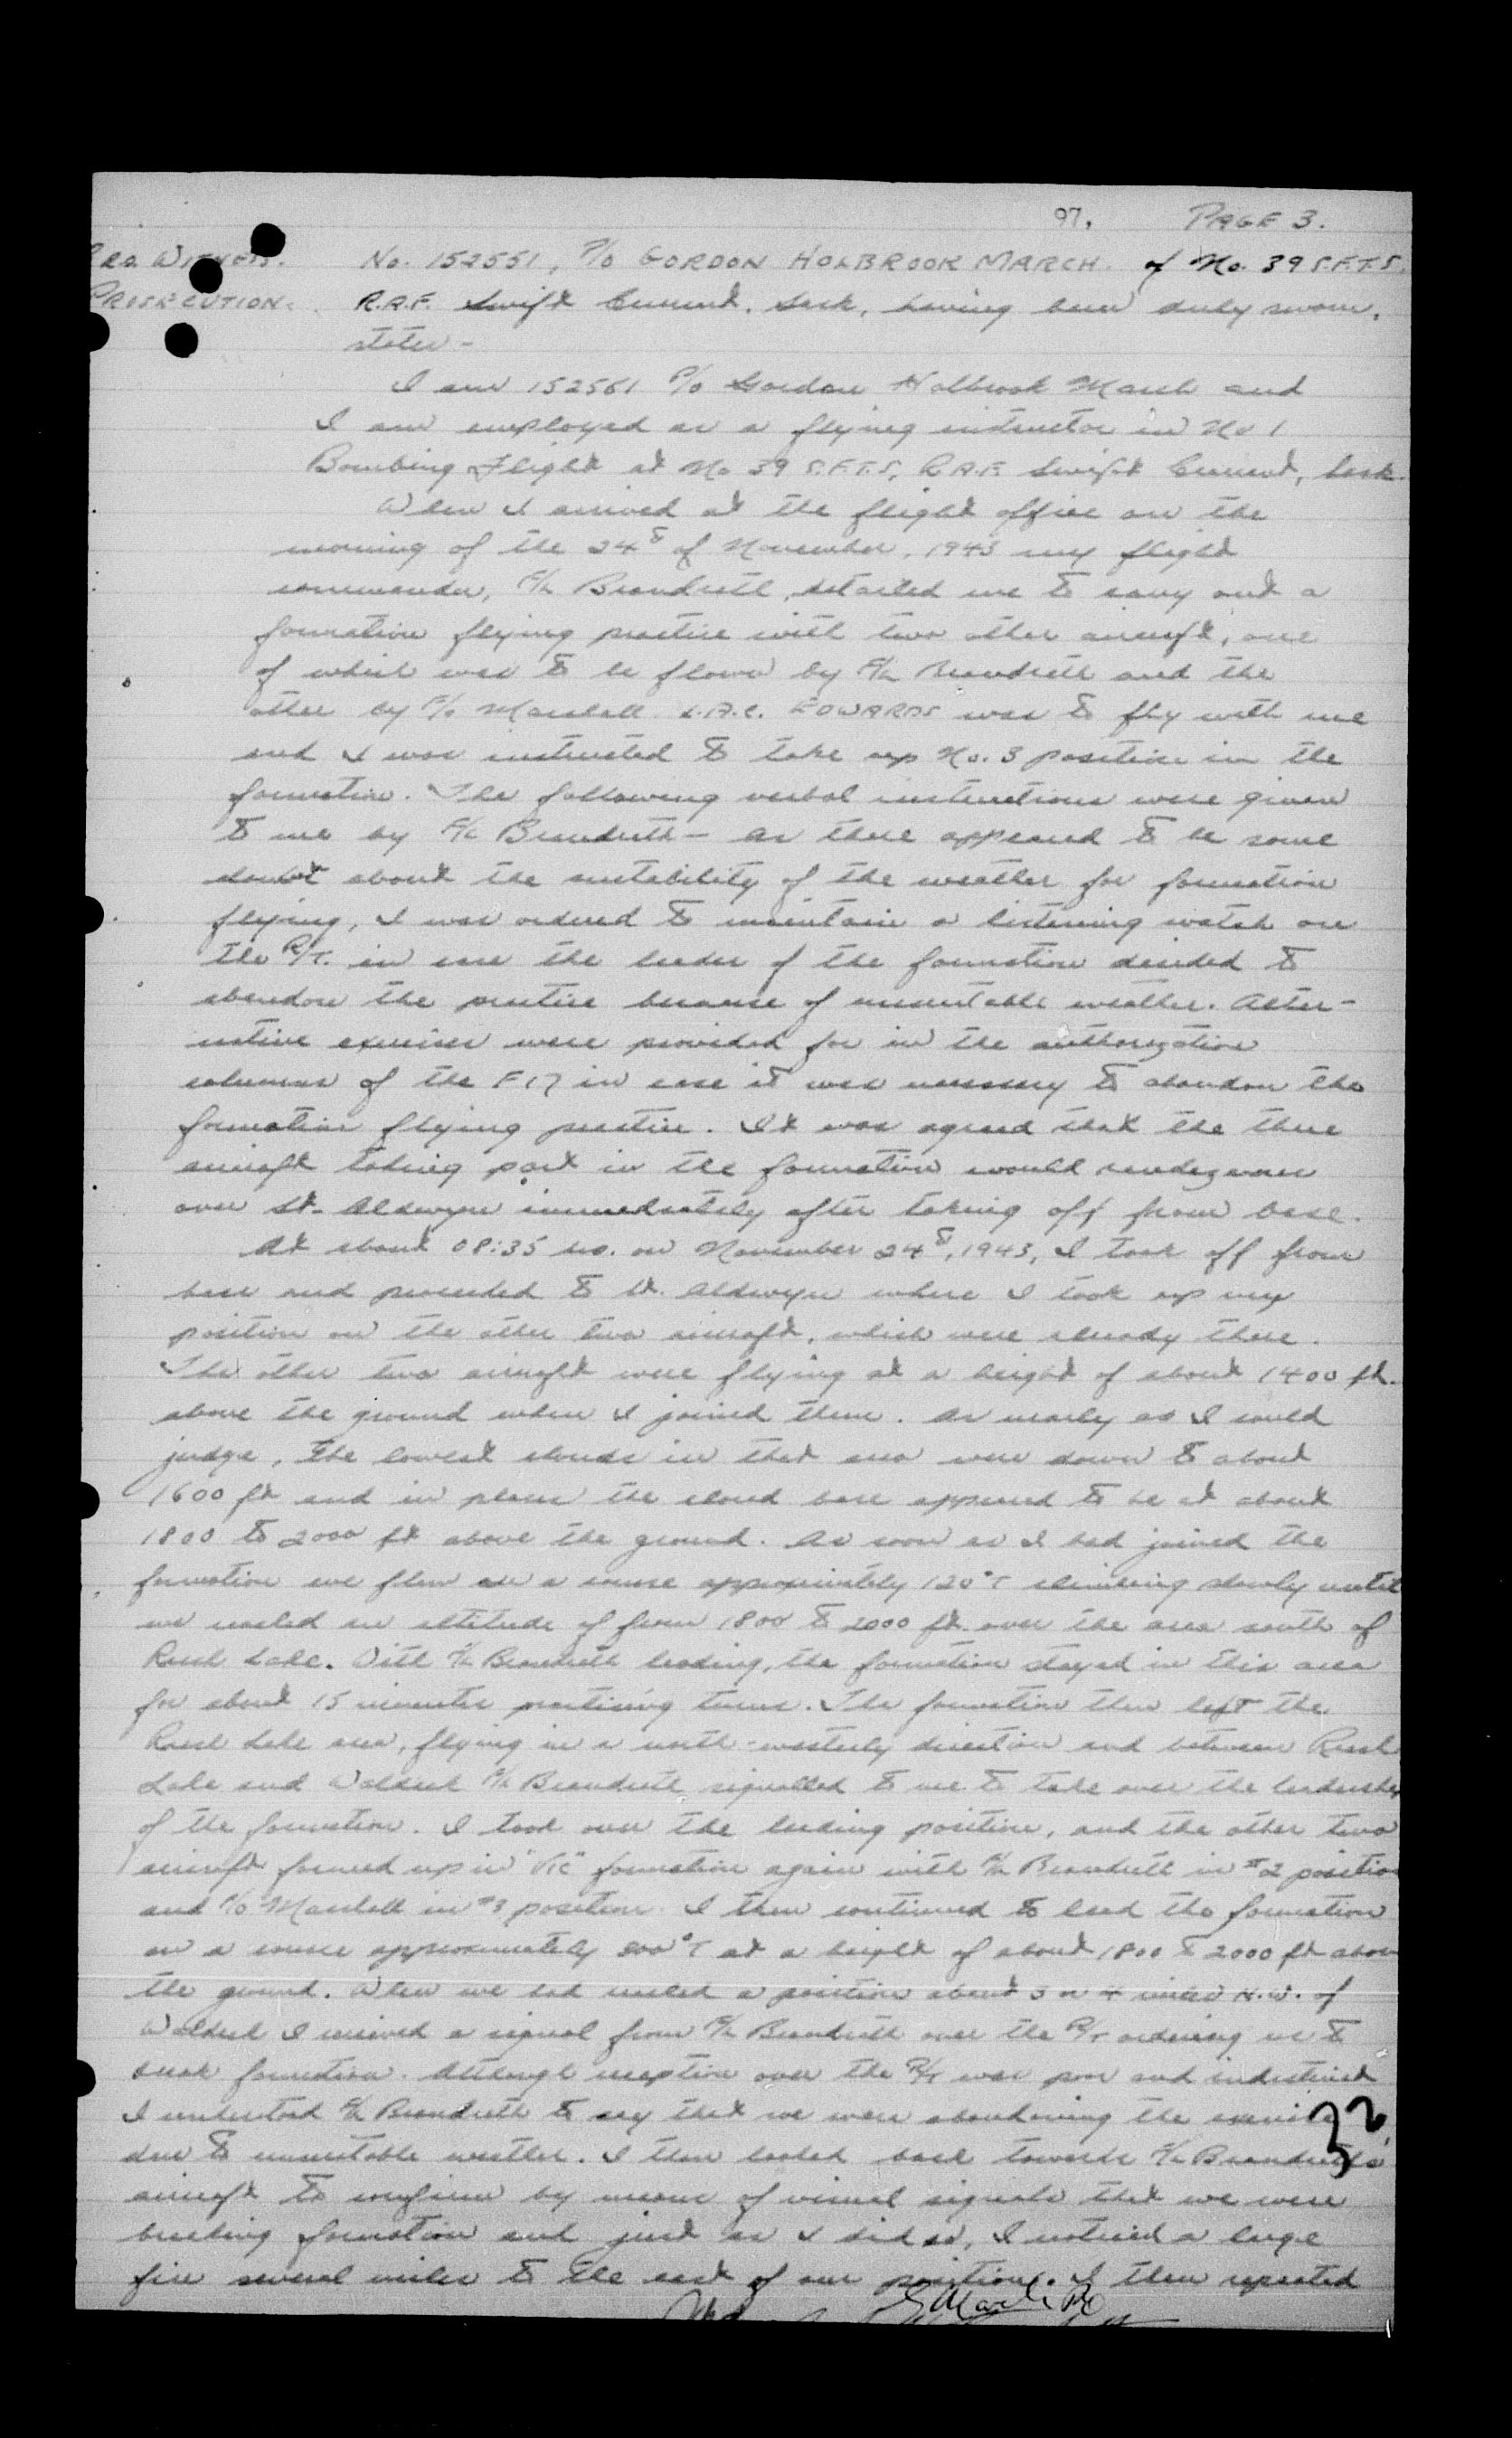 97. PAGE 3.
3RD. WITNESS. No. 152551, P/O GORDON HOLBROOK MARCH. of No. 39 S.F.T.S.
PROSECUTION. R.A.F. Swift Current, Sask, having been duly sworn,
states -
I am 152561 P/O Gordon Holbrook March and
I am employed as a flying instructor in No 1
Bombing Flight at No 39 S.F.T.S, R.A.F. Swift Current, Sask.
When I arrived at the flight office on the
morning of the 24th of November, 1943 my flight
commander, F/L Brandreth, detailed me to carry out a
formation flying practice with two other aircraft, one
of which was to be flown by F/L Brandreth and the
other by P/O Marshall. L.A.C. EDWARDS was to fly with me
and I was instructed to take up No. 3 position in the
formation. The following verbal instructions were given
to me by F/L Brandreth - As there appeared to be some
doubt about the suitability of the weather for formation
flying, I was ordered to maintain a listening watch on
the R/T. in case the leader of the formation decided to
abandon the practice because of unsuitable weather. Alter-
native exercises were provided for in the authorization
columns of the F17 in case it was necessary to abandon the
formation flying practice. It was agreed that the three
aircraft taking part in the formation would rendezvous
over St. Aldwyn immediately after taking off from base.
At about 08:35 hrs. on November 24th, 1943, I took off from
base and proceeded to St. Aldwyn where I took up my
position on the other two aircraft, which were already there.
The other two aircraft were flying at a height of about 1400 ft.
above the ground when I joined them. As nearly as I could
judge, the lowest clouds in that area were down to about
1600 ft and in places the cloud base appeared to be at about
1800 to 2000 ft above the ground. As soon as I had joined the
formation we flew on a course approximately 120°T climbing slowly until
we reached an altitude of from 1800 to 2000 ft. over the area south of
Rush Lake. With F/L Brandreth leading, the formation stayed in this area
for about 15 minutes practising turns. The formation then left the
Rush Lake area, flying in a north-westerly direction and between Rush
Lake and Waldeck F/L Brandreth signalled to me to take over the leadership
of the formation. I took over the leading position, and the other two
aircraft formed up in "Vic" formation again with F/L Brandreth in #2 position
and P/O Marshall in #3 position. I then continued to lead the formation
on a course approximately 300°T at a height of about 1800 to 2000 ft above
the ground. When we had reached a position about 3 or 4 miles N.W. of
Waldeck I received a signal from F/L Brandreth over the R/T ordering us to
break formation. Although reception over the R/T was poor and indistinct
I understood F/L Brandreth to say that we were abandoning the exercise
due to unsuitable weather. I then looked back towards F/L Brandreth's
32
aircraft to confirm by means of visual signals that we were
breaking formation and just as I did so, I noticed a large
fire several miles to the east of our position. I then repeated
G March P/O